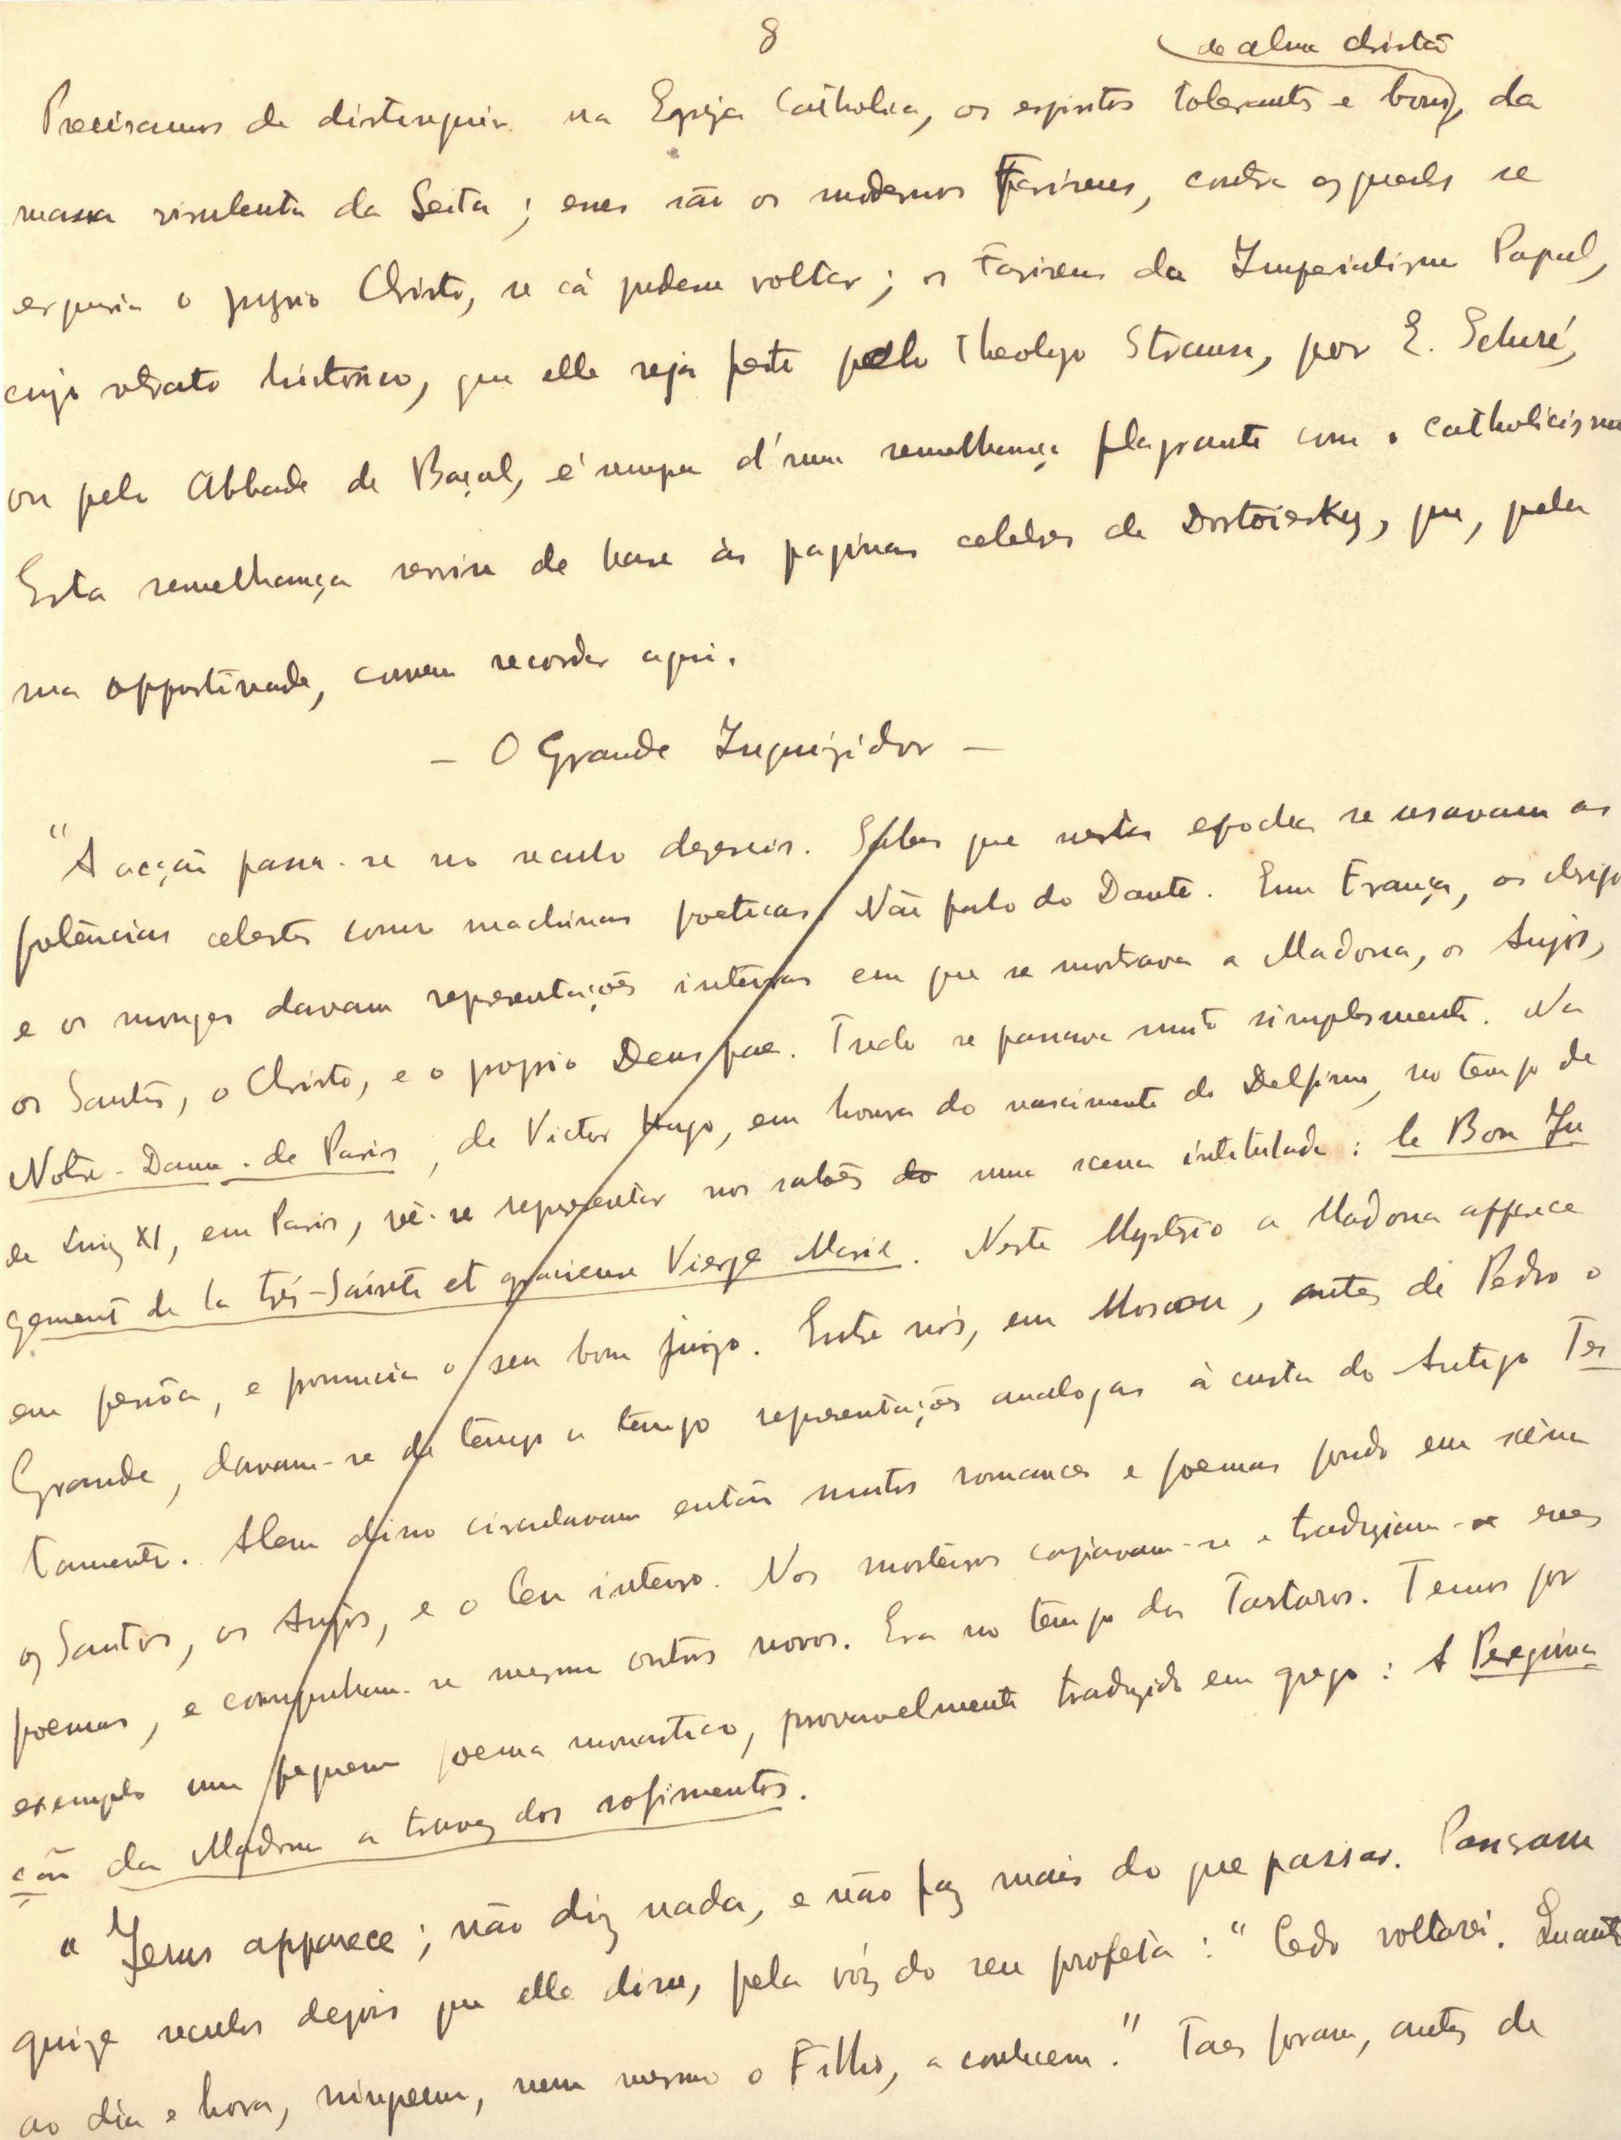 8
de alma christã
Precisamos de distinguir na Egreja Catholica, os espiritos tolerantes e bons, da
massa virulenta da Seita; esses são os modernos Farizeus, contra os quaes se
ergueria o proprio Christo, se cá podesse voltar; os Farizeus do Imperialismo Papal,
cujo retrato historico, quer elle seja feito pelo Theologo Strauss, por E. Schuré,
ou pelo Abbade de Baçal, é sempre d'uma semelhança flagrante com o catholicismo
Esta semelhança serviu de base ás paginas celebres de Dostoiesky, que, pela
sua opportunidade, convem recordar aqui.
— O Grande Inquizidor —
"A acção passa-se no seculo dezeseis. Sabes que nesta epocha se usavam as
potências celestes como machinas poeticas. Não falo do Dante. Em França, os clerigos
e os monges davam representações inteiras em que se mostrava a Madona, os Anjos,
os Santos, o Christo, e o proprio Deus pae. Tudo se passava muito simplesmente. Na
Notre-Dame-de Paris, de Victor Hugo, em honra do nascimento do Delfim, no tempo de
de Luiz XI, em Paris, vê-se representar nos salões do uma scena intitulada: le Bon Ju
gement de la très-Sainte et gracieuse Vierge Marie. Neste Mysterio a Madona apparece
em pessôa, e pronuncia o seu bom juizo. Entre nós, em Moscou, antes de Pedro o
Grande, davam-se de tempo a tempo representações analogas à custa do Antigo Tes
tamento. Alem disso circulavam então muitos romances e poemas pondo em scêna
os Santos, os Anjos, e o Ceu inteiro. Nos mosteiros copiavam-se e traduziam-se esses
poemas, e compunham-se mesmo outros novos. Era no tempo dos Tartaros. Temos por
exemplo um pequeno poema monastico, provavelmente traduzido em grego: A Peregrina
ção da Madona a travez dos sofrimentos.
"Jesus apparece; não diz nada, e não faz mais do que passar. Passaram
quize seculos depois que elle disse, pela vóz do seu profeta: "Cedo voltarei. Quanto
ao dia e hora, ninguem, nem mesmo o Filho, a conhecem." Taes foram, antes de